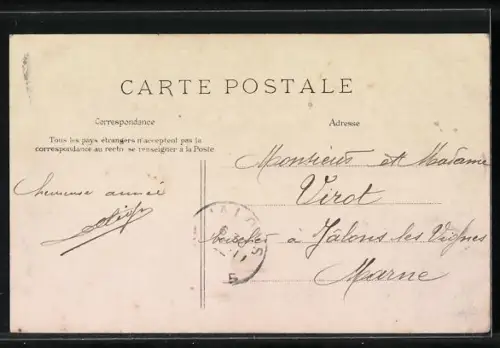 CARTE POSTALE
Correspondance
Tous les pays étrangers n'acceptent pas la
correspondance au recto se renseigner à la Poste
Adresse
heureuse année
Monsieur et Madame
Virot
à Jâlons les Vignes
Marne